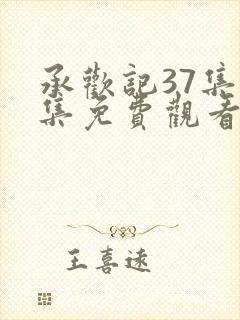 承歡記37集
集免費觀看
王喜遠